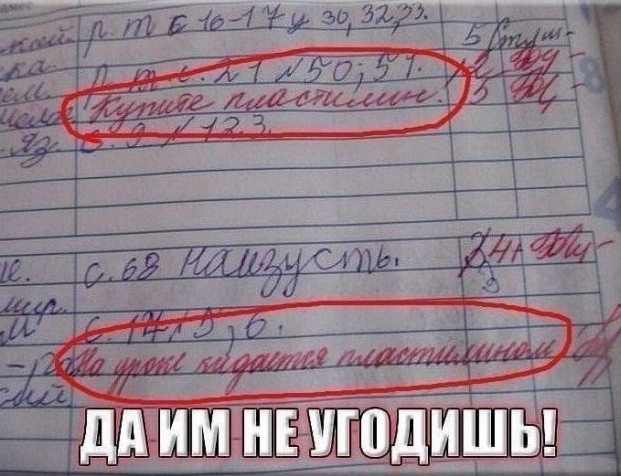 р. т с 16-17 у 30, 32, 33.
5
р. т. с. 21 N 50; 51.
Купите пластилин. 5
с. 9 N 123.
с. 68 наизусть.
с. 17 N 5, 6.
На уроке кидается пластилином
ДА ИМ НЕ УГОДИШЬ!